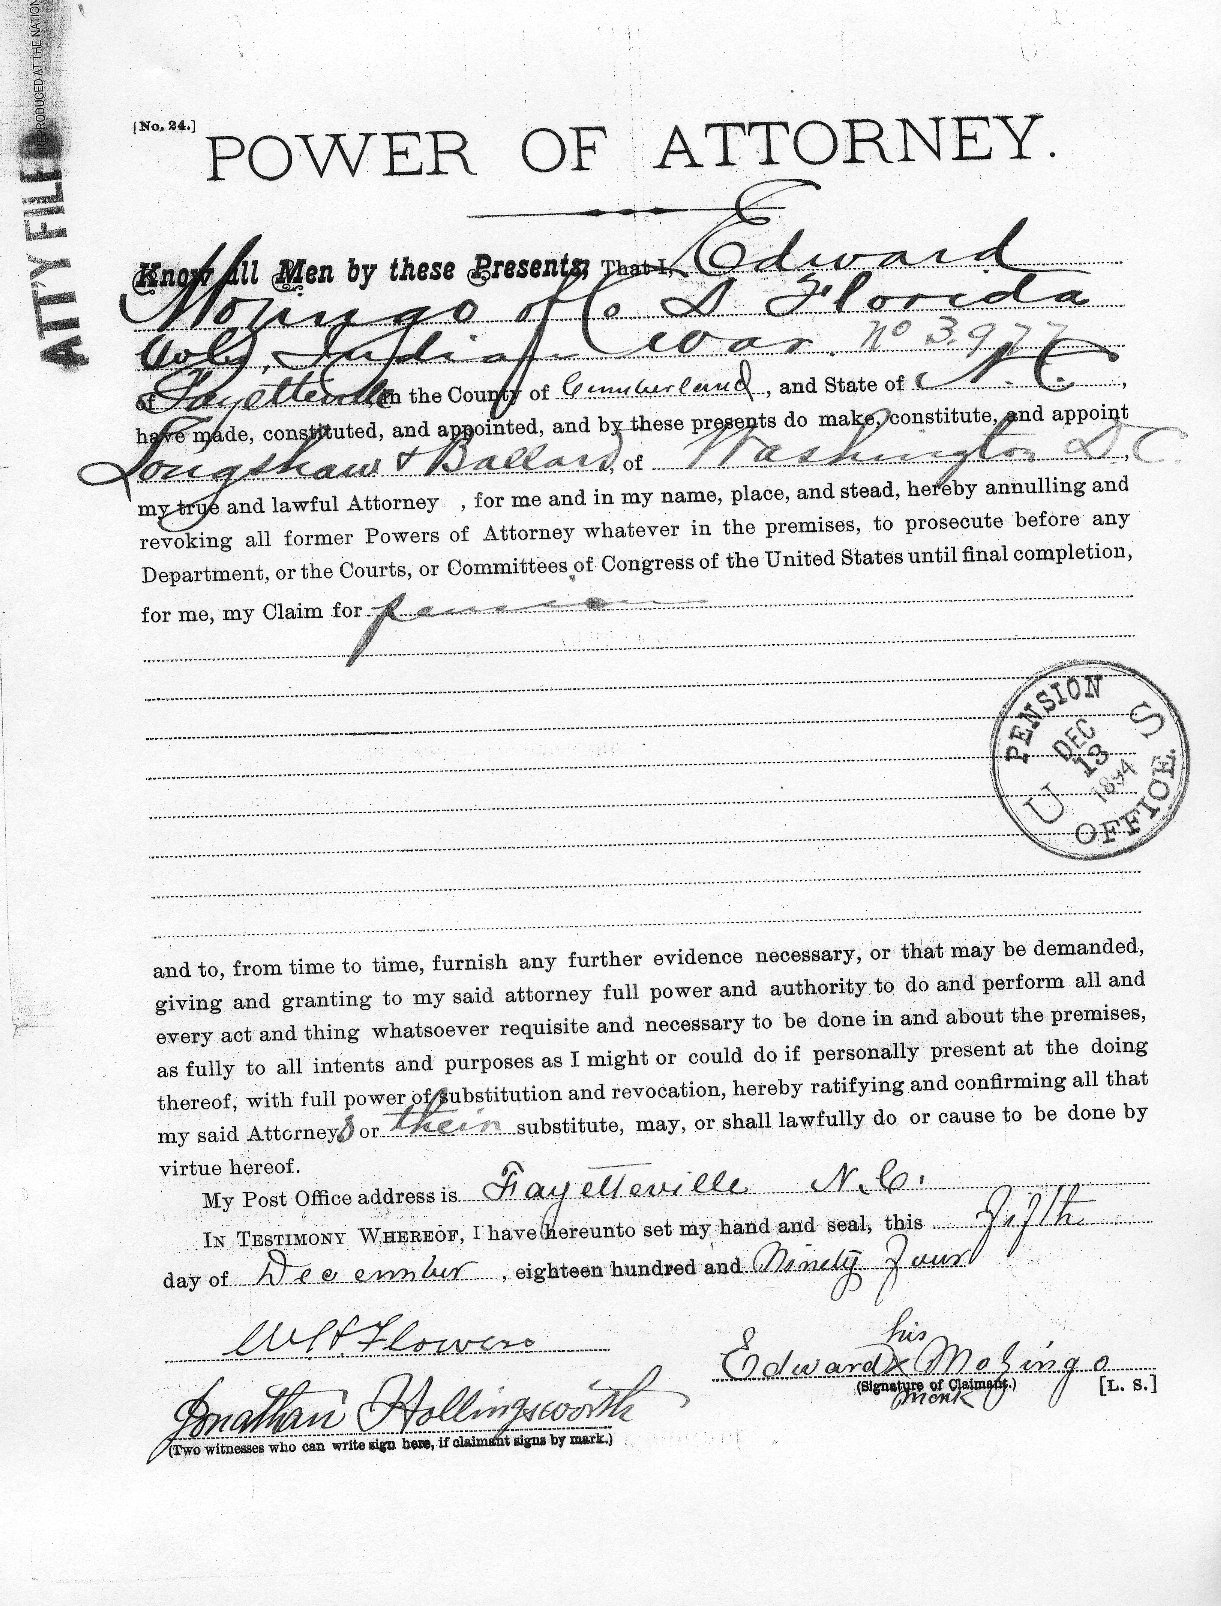 REPRODUCED AT THE NATION
ATT'Y FILE
[No. 24.]
POWER OF ATTORNEY.
Know all Men by these Presents; That I, Edward
Mozingo of Co D Florida
Vols, Indian War. No 3.977
of Fayetteville in the County of Cumberland, and State of N. C.,
have made, constituted, and appointed, and by these presents do make, constitute, and appoint
Longshaw & Ballard, of Washington D.C.
my true and lawful Attorney , for me and in my name, place, and stead, hereby annulling and
revoking all former Powers of Attorney whatever in the premises, to prosecute before any
Department, or the Courts, or Committees of Congress of the United States until final completion,
for me, my Claim for pension
PENSION OFFICE.
U S
DEC
13
1894
and to, from time to time, furnish any further evidence necessary, or that may be demanded,
giving and granting to my said attorney full power and authority to do and perform all and
every act and thing whatsoever requisite and necessary to be done in and about the premises,
as fully to all intents and purposes as I might or could do if personally present at the doing
thereof, with full power of substitution and revocation, hereby ratifying and confirming all that
my said Attorneys or their substitute, may, or shall lawfully do or cause to be done by
virtue hereof.
My Post Office address is Fayetteville N.C.
IN TESTIMONY WHEREOF, I have hereunto set my hand and seal, this fifth
day of December, eighteen hundred and Ninety Four
W H Flowers
his
Edward x Mozingo
(Signature of Claimant.) [L. S.]
mark
Jonathan Hollingsworth
(Two witnesses who can write sign here, if claimant signs by mark.)